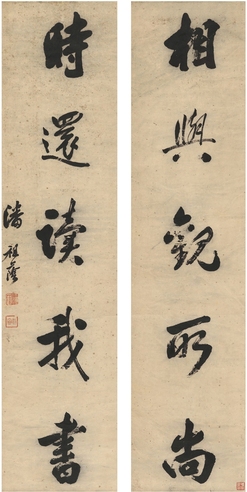 相與觀所尚
時還讀我書
潘祖蔭